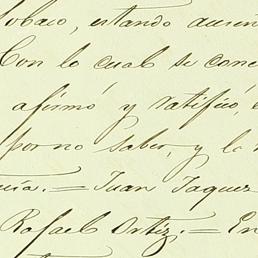 estando ausen
Con lo cual se conc
afirmó y ratificó,
por no saber, y lo
= Juan Jaquez
Rafael Ortiz. = En